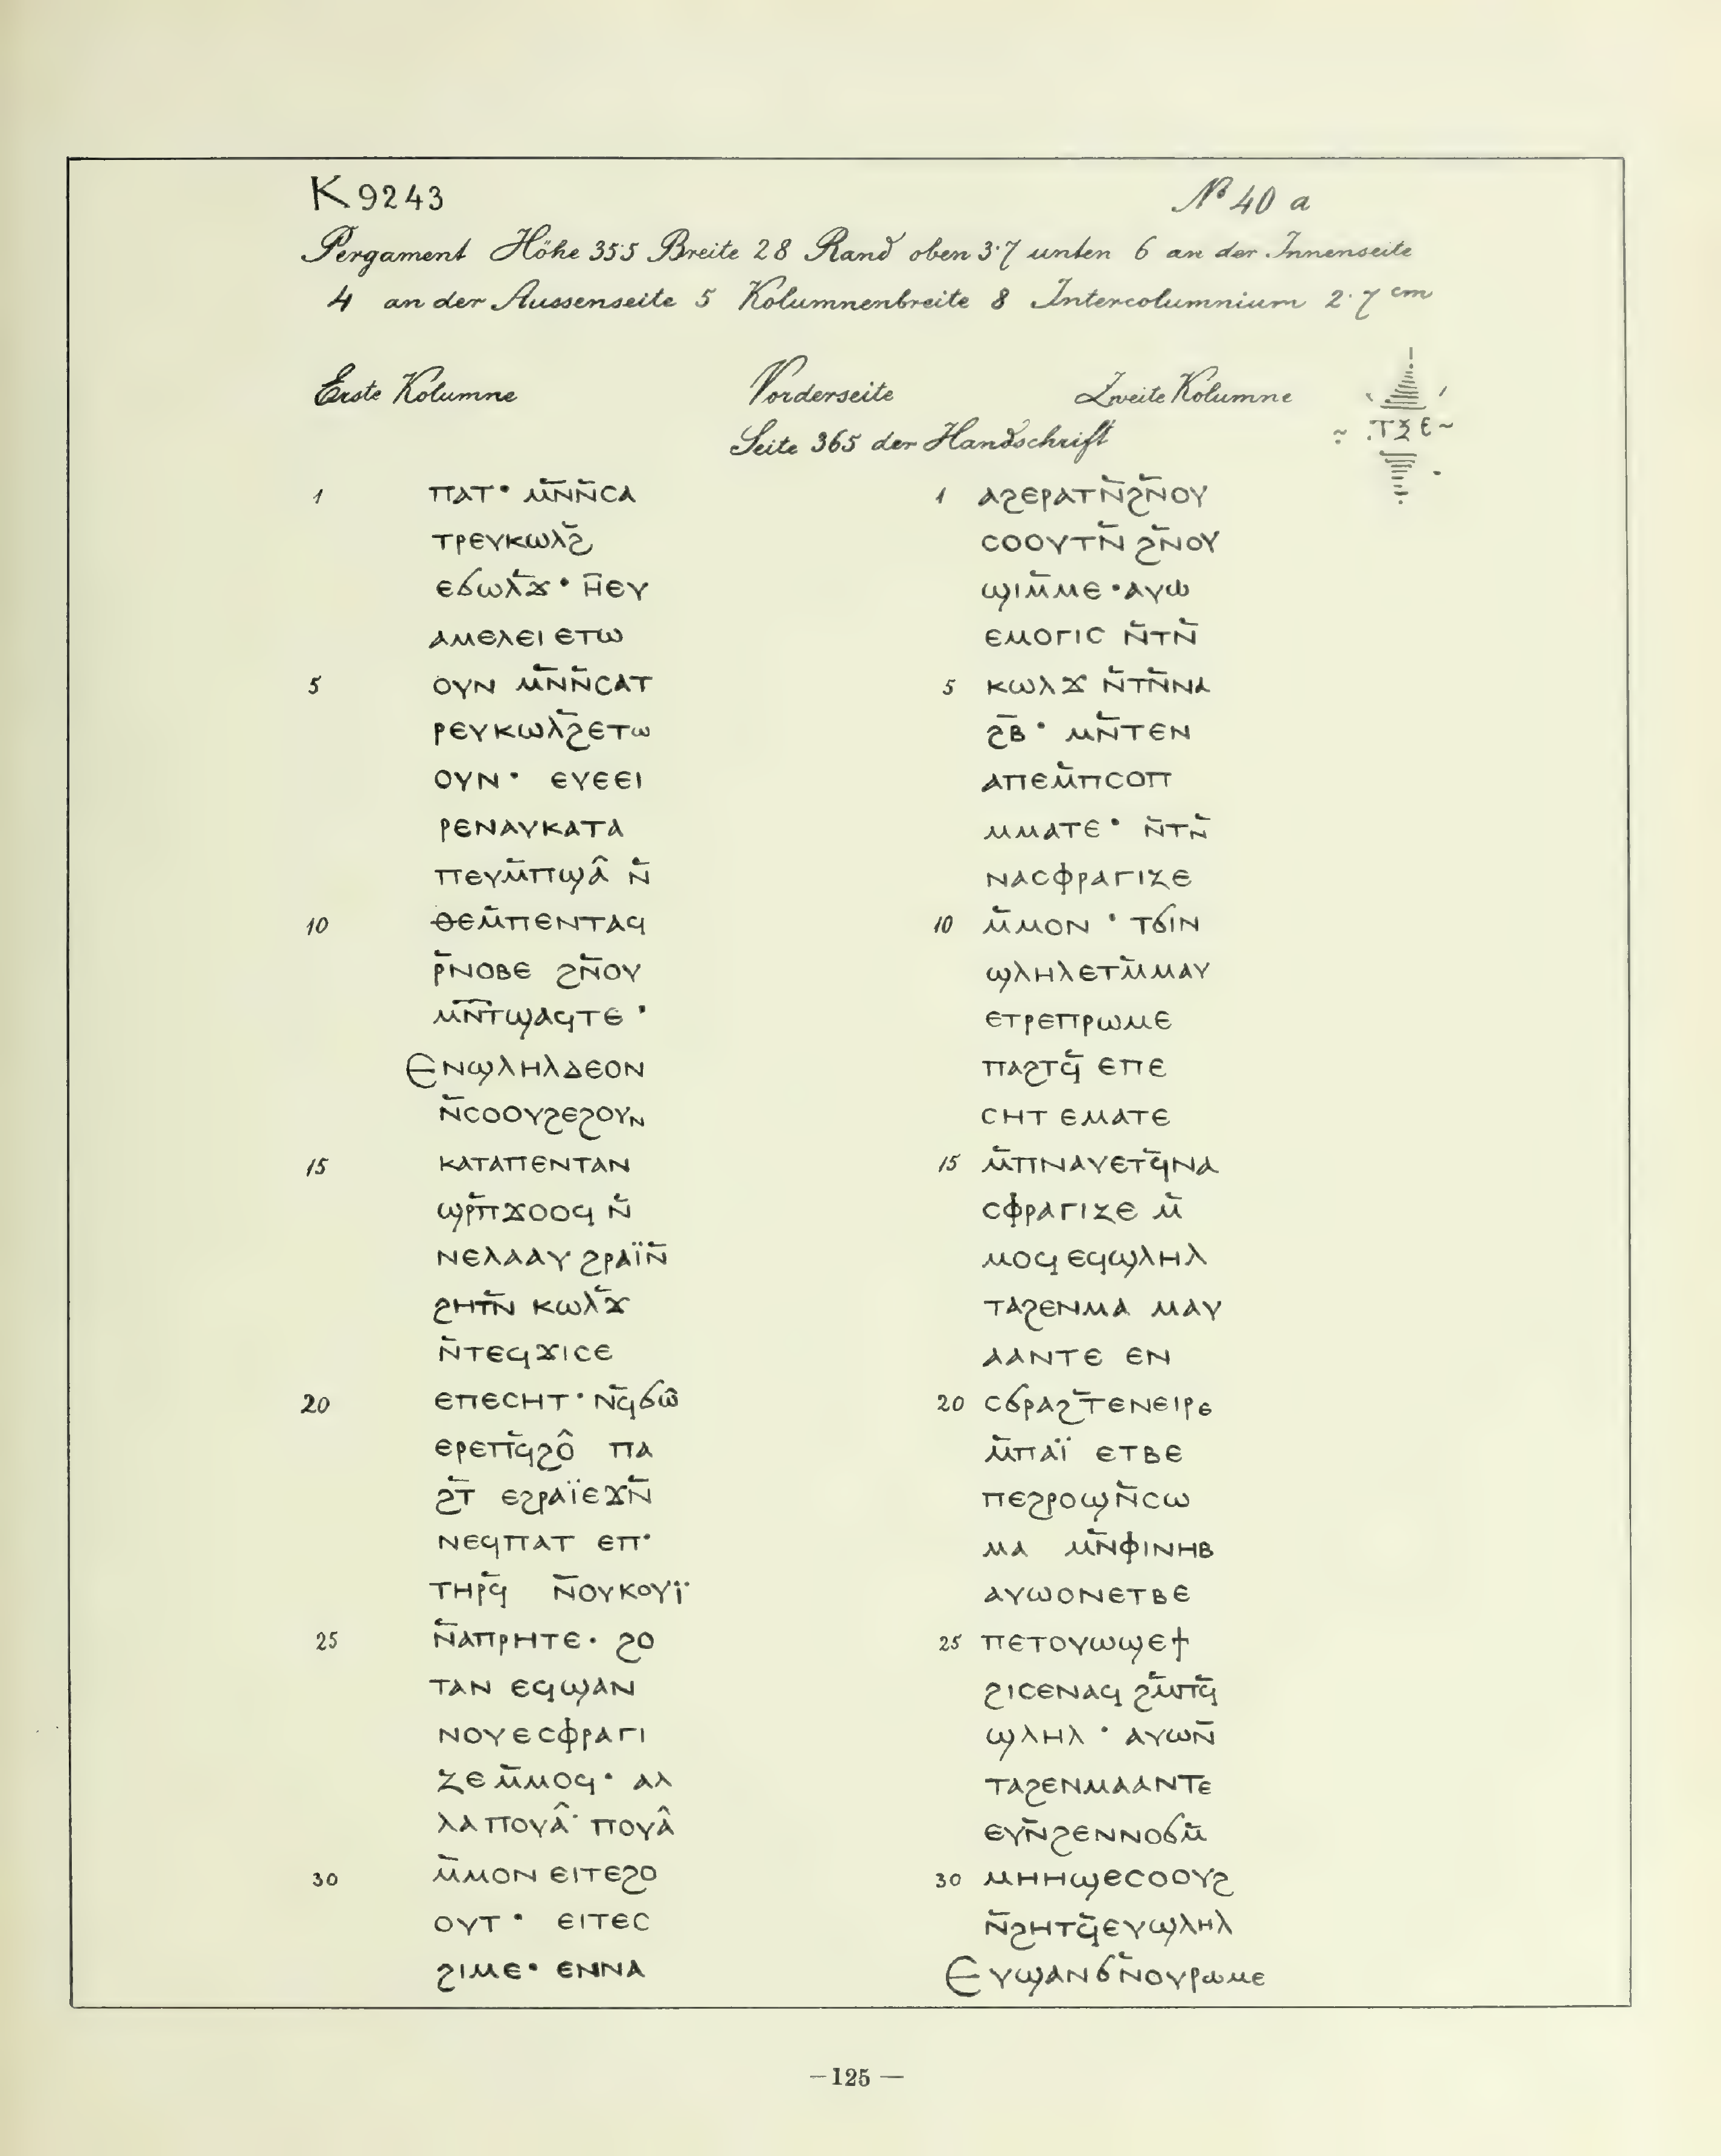 K 9243
№ 40 a
Pergament Höhe 35·5 Breite 28 Rand oben 3·7 unten 6 an der Innenseite
4 an der Aussenseite 5 Kolumnenbreite 8 Intercolumnium 2·7 cm
Erste Kolumne Vorderseite Zweite Kolumne
ⲧⲝⲉ
Seite 365 der Handschrift
1 ⲡⲁⲧ· ⲙ̄ⲛ̄ⲛ̄ⲥⲁ
ⲧⲣⲉⲩⲕⲱⲗϩ̄
ⲉϭⲱⲗ̄ϫ· ⲏ̄ⲉⲩ
ⲁⲙⲉⲗⲉⲓ ⲉⲧⲱ
5 ⲟⲩⲛ ⲙ̄ⲛ̄ⲛ̄ⲥⲁⲧ
ⲣⲉⲩⲕⲱⲗϩ̄ⲉⲧⲱ
ⲟⲩⲛ· ⲉⲩⲉⲉⲓ
ⲣⲉⲛⲁⲩⲕⲁⲧⲁ
ⲡⲉⲩⲙ̄ⲡϣⲁ̂ ⲛ̄
10 ⲑⲉⲙ̄ⲡⲉⲛⲧⲁϥ
ⲣ̄ⲛⲟⲃⲉ ϩⲛ̄ⲟⲩ
ⲙ̄ⲛ̄ⲧϣⲁϥⲧⲉ·
Ⲉⲛϣⲗⲏⲗⲇⲉⲟⲛ
ⲛ̄ⲥⲟⲟⲩϩⲉϩⲟⲩⲛ
15 ⲕⲁⲧⲁⲡⲉⲛⲧⲁⲛ
ϣⲣ̄ⲡϫⲟⲟϥ ⲛ̄
ⲛⲉⲗⲁⲁⲩ ϩⲣⲁⲓ̈ⲛ̄
ϩⲏⲧⲛ̄ ⲕⲱⲗ̄ϫ
ⲛ̄ⲧⲉϥϫⲓⲥⲉ
20 ⲉⲡⲉⲥⲏⲧ· ⲛϥ̄ϭⲱ̂
ⲉⲣⲉⲡϥ̄ϩⲟ̂ ⲡⲁ
ϩ̄ⲧ ⲉϩⲣⲁⲓ̈ⲉϫⲛ̄
ⲛⲉϥⲡⲁⲧ ⲉⲡ·
ⲧⲏⲣϥ̄ ⲛ̄ⲟⲩⲕⲟⲩⲓ̈
25 ⲛ̄ⲁⲡⲣⲏⲧⲉ· ϩⲟ
ⲧⲁⲛ ⲉϥϣⲁⲛ
ⲛⲟⲩⲉⲥⲫⲣⲁⲅⲓ
ⲍⲉⲙ̄ⲙⲟϥ· ⲁⲗ
ⲗⲁⲡⲟⲩⲁ̂· ⲡⲟⲩⲁ̂
30 ⲙ̄ⲙⲟⲛ ⲉⲓⲧⲉϩⲟ
ⲟⲩⲧ· ⲉⲓⲧⲉⲥ
ϩⲓⲙⲉ· ⲉⲛⲛⲁ
1 ⲁϩⲉⲣⲁⲧⲛ̄ϩⲛ̄ⲟⲩ
ⲥⲟⲟⲩⲧⲛ̄ ϩⲛ̄ⲟⲩ
ϣⲓⲙ̄ⲙⲉ·ⲁⲩⲱ
ⲉⲙⲟⲅⲓⲥ ⲛ̄ⲧⲛ̄
5 ⲕⲱⲗϫ ⲛ̄ⲧⲛ̄ⲛⲁ
ϩ̄ⲃ· ⲙⲛ̄ⲧⲉⲛ
ⲁⲡⲉⲙ̄ⲡⲥⲟⲡ
ⲙⲙⲁⲧⲉ· ⲛ̄ⲧⲛ̄
ⲛⲁⲥⲫⲣⲁⲅⲓⲍⲉ
10 ⲙ̄ⲙⲟⲛ· ⲧϭⲓⲛ
ϣⲗⲏⲗⲉⲧⲙ̄ⲙⲁⲩ
ⲉⲧⲣⲉⲡⲣⲱⲙⲉ
ⲡⲁϩⲧϥ̄ ⲉⲡⲉ
ⲥⲏⲧ ⲉⲙⲁⲧⲉ
15 ⲙ̄ⲡⲛⲁⲩⲉⲧϥ̄ⲛⲁ
ⲥⲫⲣⲁⲅⲓⲍⲉ ⲙ̄
ⲙⲟϥ ⲉϥϣⲗⲏⲗ
ⲧⲁϩⲉⲛⲙⲁ ⲙⲁⲩ
ⲁⲁⲛⲧⲉ ⲉⲛ
20 ⲥϭⲣⲁϩ̄ⲧⲉⲛⲉⲓⲣⲉ
ⲙ̄ⲡⲁⲓ̈ ⲉⲧⲃⲉ
ⲡⲉϩⲣⲟϣⲛ̄ⲥⲱ
ⲙⲁ ⲙⲛ̄ⲫⲓⲛⲏⲃ
ⲁⲩⲱⲟⲛⲉⲧⲃⲉ
25 ⲡⲉⲧⲟⲩⲱϣⲉϯ
ϩⲓⲥⲉⲛⲁϥ ϩⲙ̄ⲡϥ̄
ϣⲗⲏⲗ· ⲁⲩⲱⲛ̄
ⲧⲁϩⲉⲛⲙⲁⲁⲛⲧⲉ
ⲉⲩⲛ̄ϩⲉⲛⲛⲟϭⲙ̄
30 ⲙⲏⲏϣⲉⲥⲟⲟⲩϩ
ⲛ̄ϩⲏⲧϥ̄ⲉⲩϣⲗⲏⲗ
Ⲉⲩϣⲁⲛϭⲛ̄ⲟⲩⲣⲱⲙⲉ
– 125 —